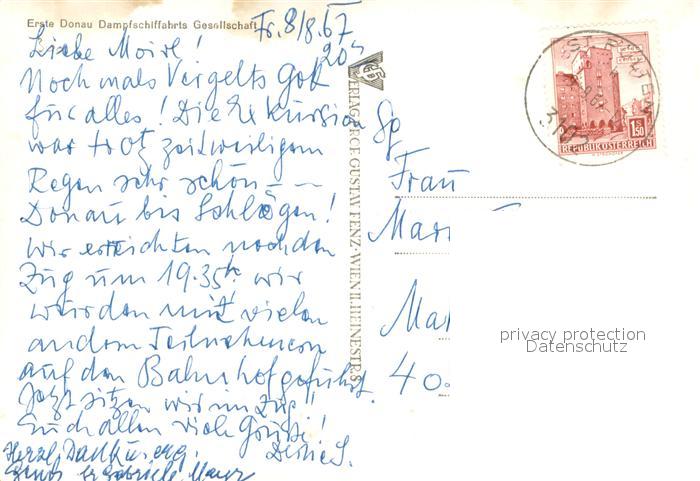 Erste Donau Dampfschiffahrts Gesellschaft
Fr. 8/8.67
20h
Liebe Moisl!
Nochmals Vergelts Gott
für alles! Die Exkursion
war trotz zeitweiligem
Regen sehr schön —
Donau bis Schlögen!
wir erreichten noch den
Zug um 19.35h. wir
wurden mit vielen
andern Teilnehmern
auf den Bahnhof geführt.
Jetzt sitzen wir im Zug!
Euch allen viele Grüße!
Herzl. Dank u.
Gabriele
VERLAG FRCE GUSTAV FENZ · WIEN II. HEINESTR.
Frau
Mar
Ma
40
1.50
REPUBLIK ÖSTERREICH
ST. PÖLTEN
privacy protection
Datenschutz